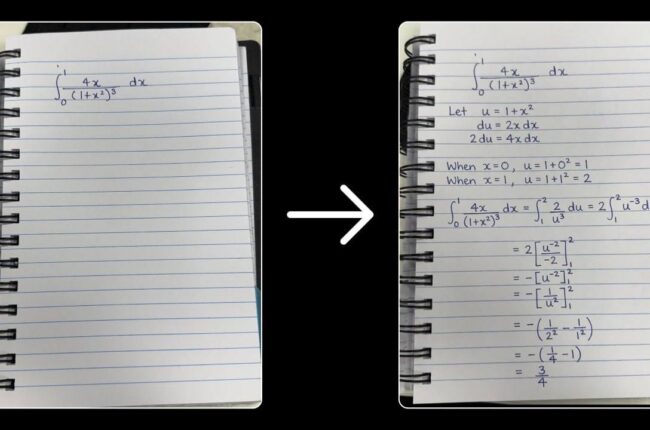 ∫₀¹ 4x/(1+x²)³ dx
∫₀¹ 4x/(1+x²)³ dx
Let u = 1+x²
du = 2x dx
2 du = 4x dx
When x=0, u = 1+0² = 1
When x=1, u = 1+1² = 2
∫₀¹ 4x/(1+x²)³ dx = ∫₁² 2/u³ du = 2∫₁² u⁻³ d
= 2[u⁻²/-2]₁²
= -[u⁻²]₁²
= -[1/u²]₁²
= -(1/2² - 1/1²)
= -(1/4 - 1)
= 3/4